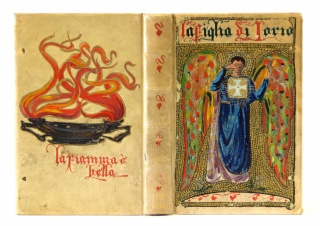 La Figlia di Iorio
la fiamma è
bella